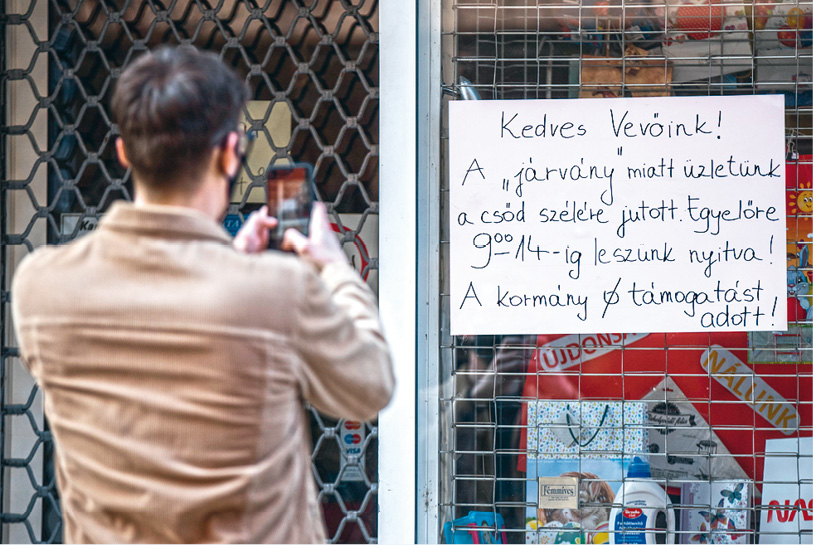 Kedves Vevőink!
A „járvány" miatt üzletünk
a csőd szélére jutott. Egyelőre
9⁰⁰-14-ig leszünk nyitva!
A kormány ∅ támogatást
adott!
ÚJDONS
NÁLUNK
Femmives
VISA